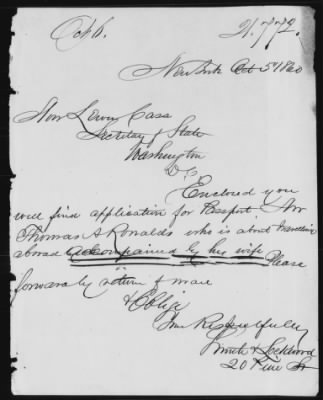 Oct 6. 21.772.
New York Oct 5th 1860
Hon Lewis Cass
Secretary of State
Washington
D C
Enclosed you
will find application for Passport for
Thomas A Ronalds who is about travelling
abroad accompained by his wife Please
forward by return of mail
& Oblige
Your Respectfully
Smith & Lockwood
20 Pine St